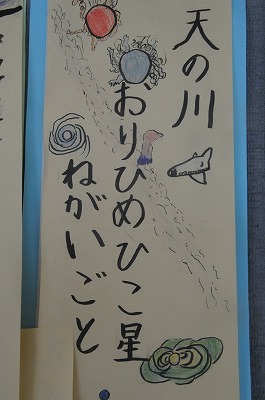 天の川
おりひめひこ星
ねがいごと